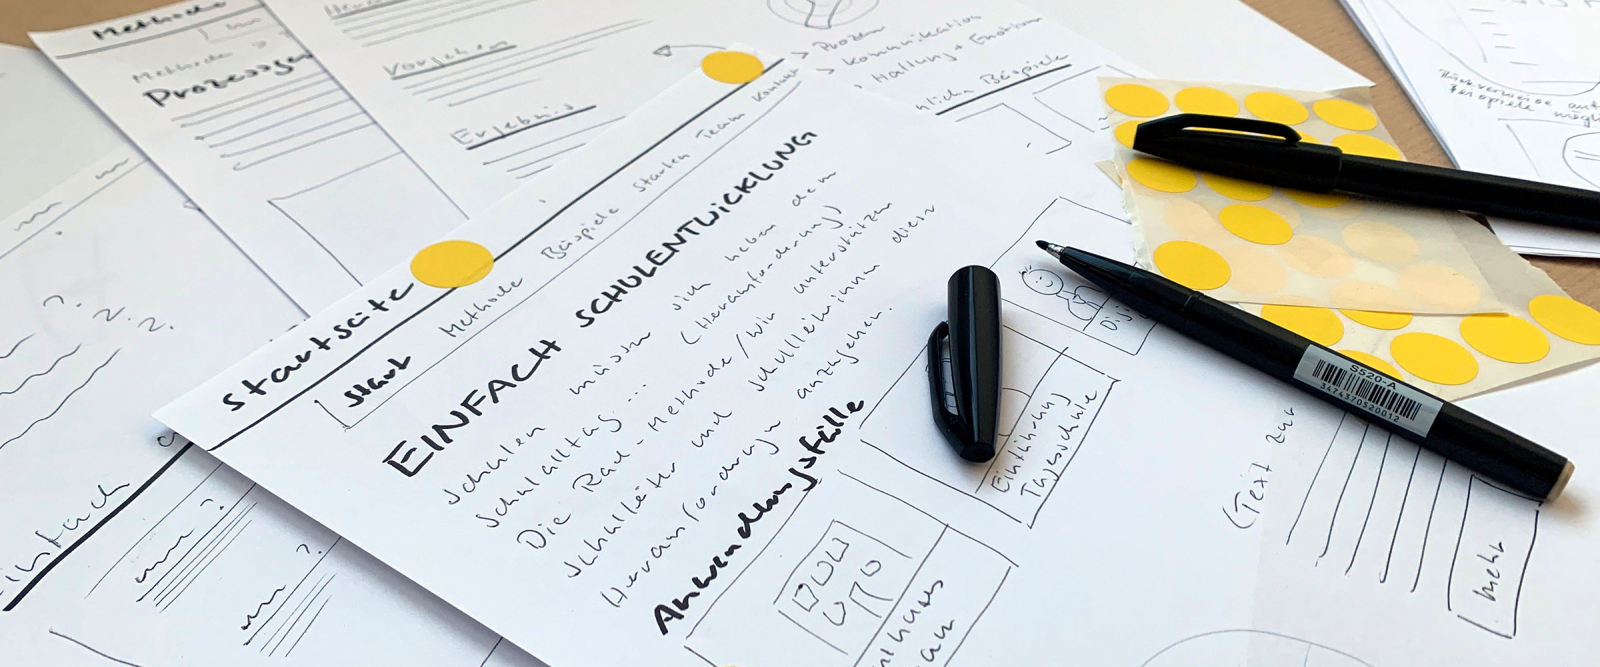 Methode
Methode
Vorgehen
Ergebnis
> Prozess
> Kommunikation
> Haltung + Emotion
Beispiele
Startseite
Start Methode Beispiele Starten Team Kontakt
EINFACH SCHULENTWICKLUNG
Schulen müssen sich neben dem
Schulalltag... (Herausforderung)
Die Rad-Methode/Wir unterstützen
Schulleiter und Schulleiterinnen diese
Herausforderung anzugehen.
Anwendungsfälle
Einführung
Tagesschule
(Text zur
mehr
S520-A
3474370520012
?
?
?
?
?